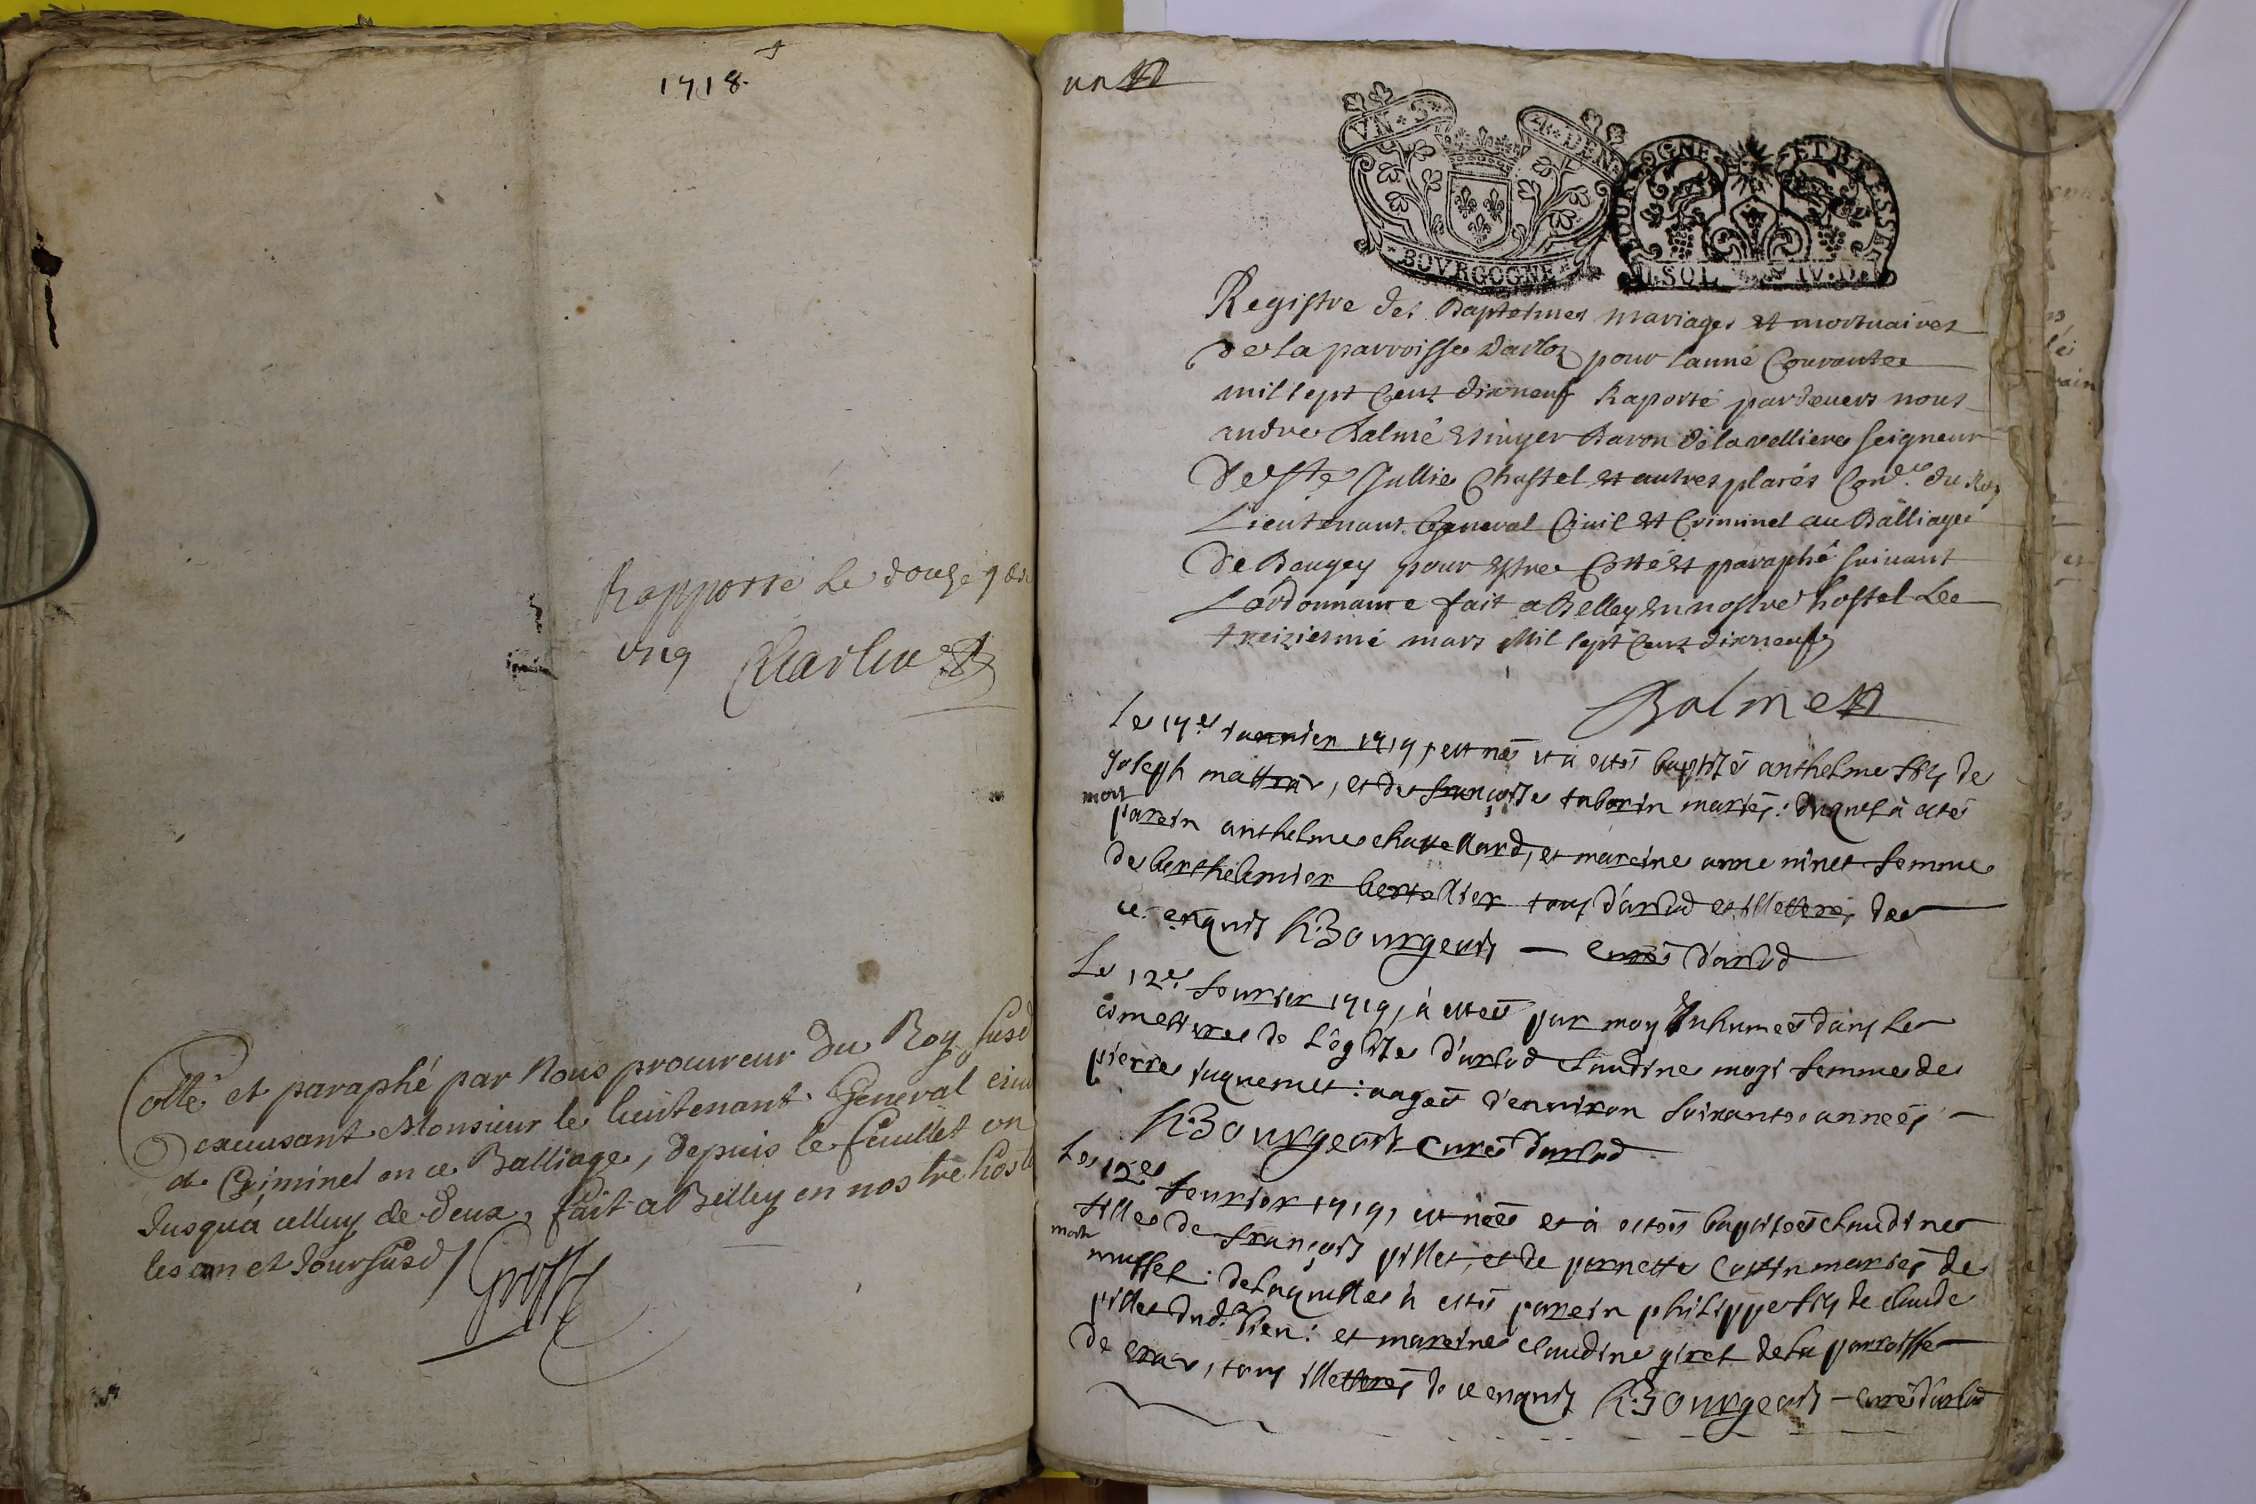 1718.
Rapporte le douze
Cotté et paraphé par Nous procureur du Roy susd
excusant Monsieur le lieutenant General civil
et Criminel en ce Balliage, depuis le feuillet un
Jusqu'a celluy de deux, fait a Belley en nostre host
les an et Jour susd
un
VN S 4 DEN
BOVRGOGNE
BOURGOGNE ET BRESSE
SOL IV.D.
Registre des Baptesmes mariages et mortuaires
de la parroisse Darloz pour lanné Courante
mil sept Cent dixneuf Raporté pardevers nous
andre Balme Escuyer Baron de la velliere seigneur
de Ste Jullie Chastel et autres places Con.er du Roy
Lieutenant General Civil et Criminel au Balliage
de Beugey pour Estre Cotté et paraphé suivant
Lordonnance fait a Belley en nostre hostel Le
treiziesme mars Mil sept Cent dixneuf
Balme
Le 17e. ianuier 1719, est né et à estés baptizé anthelme fils de
Joseph mattrav, et de françoise taborin mariés: duquel à estés
mort
parein anthelme chattellard, et mareine anne ninet femme
de berthelemier bertellier tous d'arlod et illetterés de
ce enquis R. Bourgeois — curés d'arlod
Le 12e. feurier 1719, à esteé par moy Inhumeé dans le
cimettire de l'églize d'arlod Claudine femme de
pierre iuquemet: aageé d'enuiron soixante anneés
R. Bourgeois curés d'arlod
Le 12e feurier 1719, est neé et à esteé baptizeé claudine
fille de françois pillet, et de pernette mariés de
morte
mussel: de laquelle à estés parein philippe fils de claude
pillet dud. lien: et mareine claudine giret de la parroisse
de tous illetterés de ce enquis R. Bourgeois — curés d'arlod